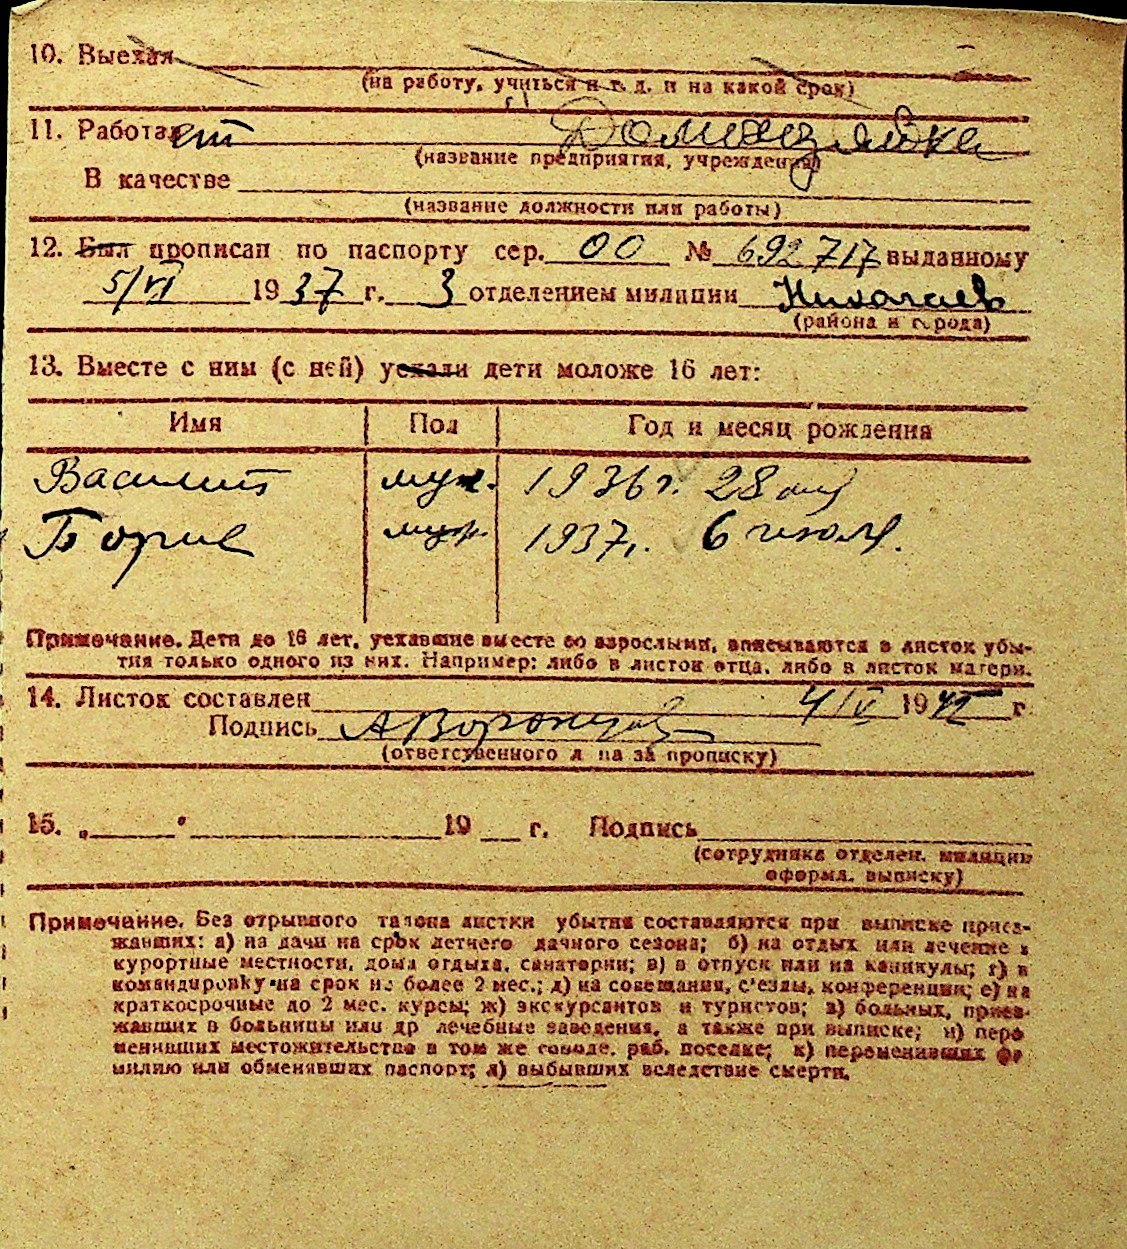 10. Выехал
(на работу, учиться и т. д. и на какой срок)
11. Работает Домохозяйка
(название предприятия, учреждения)
В качестве
(название должности или работы)
12. Был прописан по паспорту сер. 00 № 692717 выданному
5/VI 1937 г. 3 отделением милиции Николаев
(района и города)
13. Вместе с ним (с ней) уехали дети моложе 16 лет:
Имя Пол Год и месяц рождения
Василий муж. 1936 г. 28
Борис муж. 1937 г. 6 июля.
Примечание. Дети до 16 лет, уехавшие вместе со взрослыми, вписываются в листок убы-
тия только одного из них. Например: либо в листок отца, либо в листок матери.
14. Листок составлен 4/IV 1942 г
Подпись А Воронцов
(ответственного л на за прописку)
15. „ " 19 г. Подпись
(сотрудника отделен. милиции
оформл. выписку)
Примечание. Без отрывного талона листки убытия составляются при выписке приез-
жавших: а) на дачи на срок летнего дачного сезона; б) на отдых или лечение в
курортные местности, дома отдыха, санатории; в) в отпуск или на каникулы; г) в
командировку на срок не более 2 мес.; д) на совещания, с'езды, конференции; е) на
краткосрочные до 2 мес. курсы; ж) экскурсантов и туристов; з) больных, приез-
жавших в больницы или др лечебные заведения, а также при выписке; и) пере
менивших местожительство в том же городе, раб. поселке; к) переменивших фа
милию или обменявших паспорт; л) выбывших вследствие смерти.